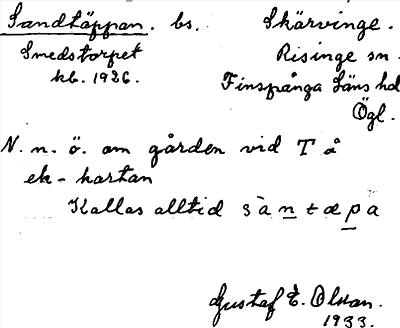 Sandtäppan. bs. Skärvinge.
Smedstorpet Risinge sn.
kb. 1926. Finspånga Läns hd
Ögl.
N. n. ö. om gården vid T å
ek-kartan
Kallas alltid sàntæpa
Gustaf E. Olsson.
1933.